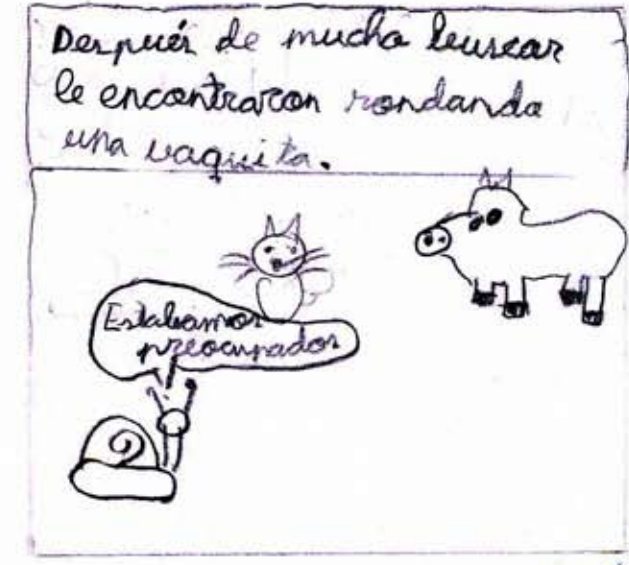 Después de mucho buscar
le encontraron rondando
una vaquita.
Estabamos
preocupados